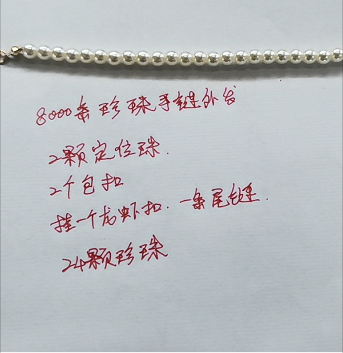 8000条珍珠手链外发
2颗定位珠.
2个包扣
挂一个龙虾扣.一条尾链.
24颗珍珠